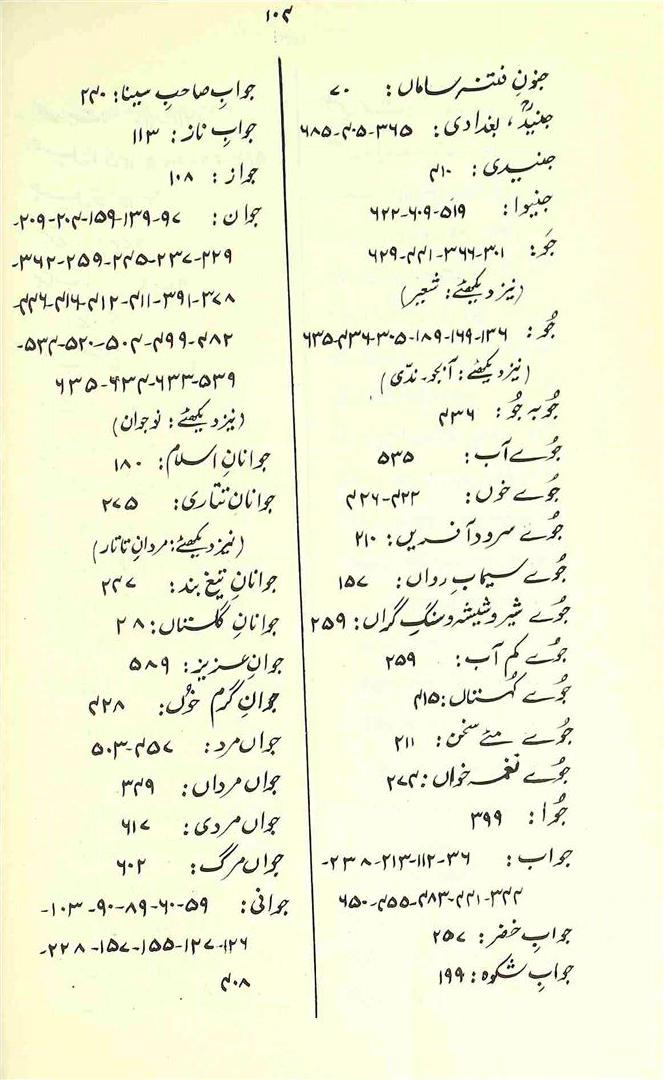 ۱۰۴
جنونِ فتنہ ساماں: ۷۰
جنیدؒ، بغدادی: ۳۶۵-۴۰۵-۶۸۵
جنیدی: ۴۱۰
جنیوا: ۵۱۹-۶۰۹-۶۲۲
جَو: ۳۰۱-۳۶۶-۴۴۱-۶۲۹
(نیز دیکھئے: شعیر)
جُو: ۱۳۶-۱۶۹-۱۸۹-۳۰۵-۴۳۶-۶۳۵
(نیز دیکھئے: آبجو۔ ندّی)
جُو بہ جُو: ۴۳۶
جُوے آب: ۵۳۵
جُوے خوں: ۴۲۲-۴۲۶
جُوے سرود آفریں: ۲۱۰
جُوے سیماب رواں: ۱۵۷
جُوے شیر و شیشہ و سنگِ گراں: ۲۵۹
جُوے کم آب: ۲۵۹
جُوے کُہستاں: ۴۱۵
جُوے مئے سخن: ۲۱۱
جُوے نغمہ خواں: ۲۷۴
جُوا: ۳۹۹
جواب: ۳۶-۱۱۲-۲۱۳-۲۳۸-
۳۴۴-۴۴۱-۴۸۳-۴۵۵-۶۵۰
جوابِ خضر: ۲۵۷
جوابِ شکوہ: ۱۹۹
جوابِ صاحبِ سینا: ۲۴۰
جوابِ ناز: ۱۱۳
جواز: ۱۰۸
جوان: ۹۷-۱۳۹-۱۵۹-۲۰۴-۲۰۹-
۲۲۹-۲۳۷-۲۴۵-۲۵۹-۳۶۲-
۳۷۸-۳۹۱-۴۱۱-۴۱۲-۴۱۶-۴۴۶-
۴۸۲-۴۹۹-۵۰۴-۵۲۰-۵۳۴-
۵۳۹-۶۳۳-۶۳۴-۶۳۵
(نیز دیکھئے: نوجوان)
جوانانِ اسلام: ۱۸۰
جوانان تتاری: ۲۷۵
(نیز دیکھئے: مردانِ تاتار)
جوانانِ تیغ بند: ۲۴۷
جوانانِ گلستاں: ۲۸
جوانِ عزیز: ۵۸۹
جوانِ گرم خُوں: ۴۲۸
جواں مرد: ۴۵۷-۵۰۳
جواں مرداں: ۳۴۹
جواں مردی: ۶۱۷
جواں مرگ: ۶۰۲
جوانی: ۵۹-۶۰-۸۹-۹۰-۱۰۳-
۱۲۶-۱۲۷-۱۵۵-۱۵۷-۲۲۸-
۴۰۸